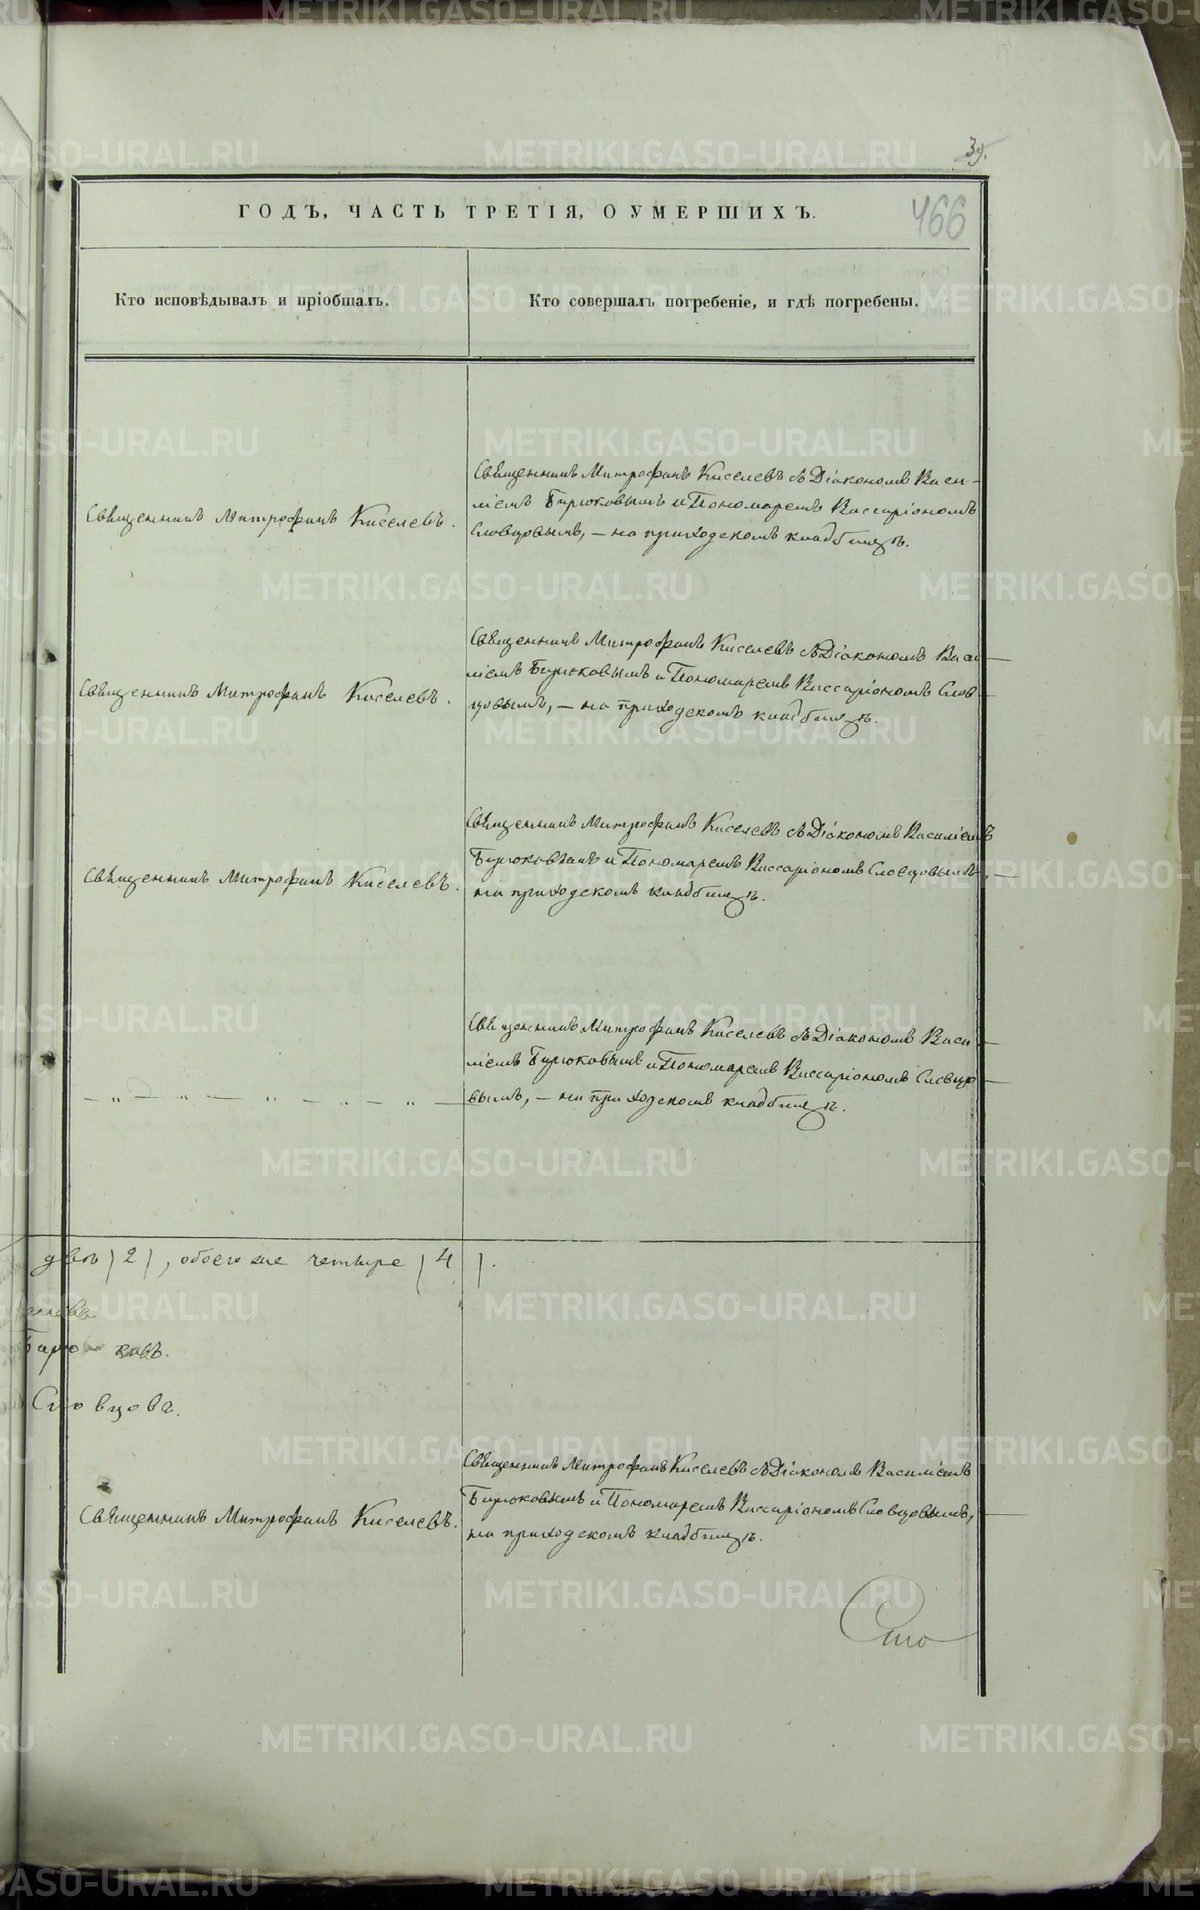 39.
ГОДЪ, ЧАСТЬ ТРЕТІЯ, О УМЕРШИХЪ.
466
Кто исповѣдывалъ и пріобщалъ.
Кто совершалъ погребеніе, и гдѣ погребены.
Священникъ Митрофанъ Киселевъ.
Священникъ Митрофанъ Киселевъ съ Діакономъ Васи-
ліемъ Бирюковымъ и Пономаремъ Виссаріономъ
Словцовымъ, — на приходскомъ кладбищѣ.
Священникъ Митрофанъ Киселевъ.
Священникъ Митрофанъ Киселевъ съ Діакономъ Васи
ліемъ Бирюковымъ и Пономаремъ Виссаріономъ Слов
цовымъ, — на приходскомъ кладбищѣ.
Священникъ Митрофанъ Киселевъ.
Священникъ Митрофанъ Киселевъ съ Діакономъ Василіемъ
Бирюковымъ и Пономаремъ Виссаріономъ Словцовымъ, —
на приходскомъ кладбищѣ.
— „ — „ — „ — „ —
Священникъ Митрофанъ Киселевъ съ Діакономъ Васи
ліемъ Бирюковымъ и Пономаремъ Виссаріономъ Словцо
вымъ, — на приходскомъ кладбищѣ.
двѣ (2), обоего же четыре (4).
ковъ.
Словцовъ.
Священникъ Митрофанъ Киселевъ.
Священникъ Митрофанъ Киселевъ съ Діакономъ Василіемъ
Бирюковымъ и Пономаремъ Виссаріономъ Словцовымъ,
на приходскомъ кладбищѣ.
METRIKI.GASO-URAL.RU